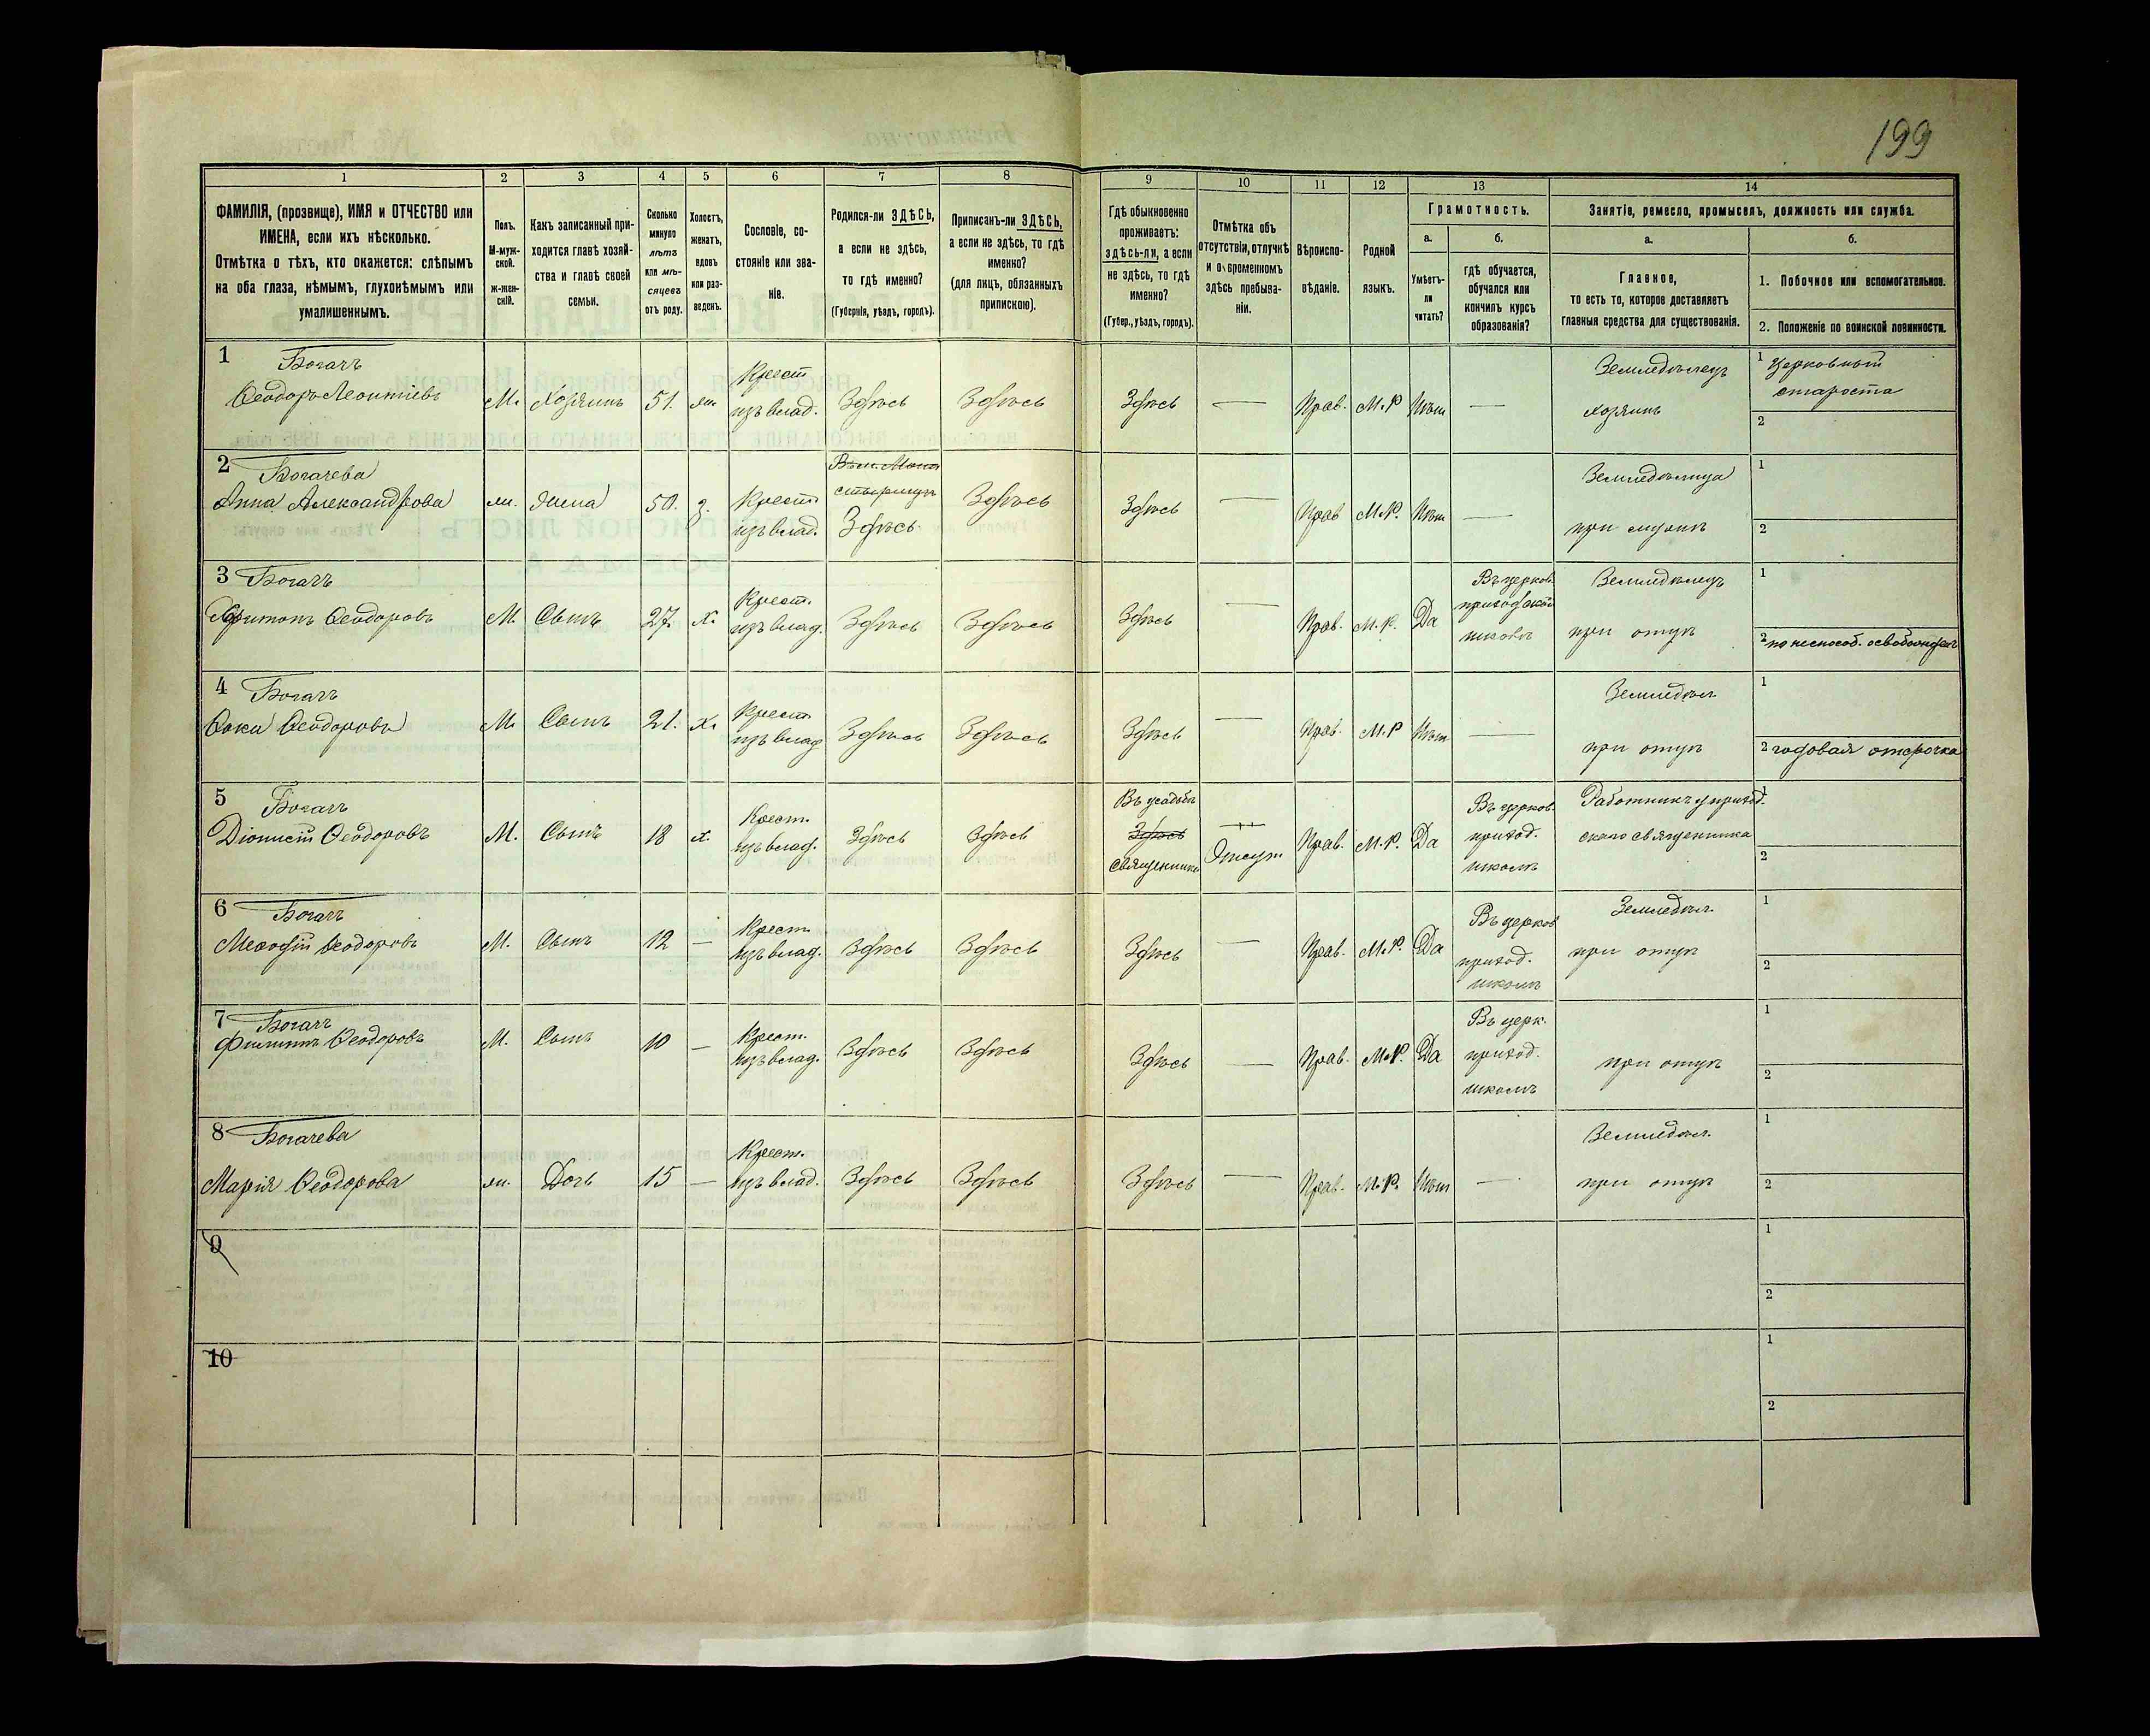 199
1 2 3 4 5 6 7 8 9 10 11 12 13 14
ФАМИЛІЯ, (прозвище), ИМЯ и ОТЧЕСТВО или
ИМЕНА, если ихъ нѣсколько.
Отмѣтка о тѣхъ, кто окажется: слѣпымъ
на оба глаза, нѣмымъ, глухонѣмымъ или
умалишеннымъ.
Полъ.
М-муж-
ской.
ж-жен-
скій.
Какъ записанный при-
ходится главѣ хозяй-
ства и главѣ своей
семьи.
Сколько
минуло
лѣтъ
или мѣ-
сяцевъ
отъ роду.
Холостъ,
женатъ,
вдовъ
или раз-
веденъ.
Сословіе, со-
стояніе или зва-
ніе.
Родился-ли ЗДѢСЬ,
а если не здѣсь,
то гдѣ именно?
(Губернія, уѣздъ, городъ).
Приписанъ-ли ЗДѢСЬ,
а если не здѣсь, то гдѣ
именно?
(для лицъ, обязанныхъ
припискою).
Гдѣ обыкновенно
проживаетъ:
здѣсь-ли, а если
не здѣсь, то гдѣ
именно?
(Губер., уѣздъ, городъ).
Отмѣтка объ
отсутствіи, отлучкѣ
и о временномъ
здѣсь пребыва-
ніи.
Вѣроиспо-
вѣданіе.
Родной
языкъ.
Грамотность.
а.
Умѣетъ-
ли
читать?
б.
гдѣ обучается,
обучался или
кончилъ курсъ
образованія?
Занятіе, ремесло, промыселъ, должность или служба.
а.
Главное,
то есть то, которое доставляетъ
главныя средства для существованія.
б.
1. Побочное или вспомогательное.
2. Положеніе по воинской повинности.
1 Богачъ
Ѳеодоръ Леонтіевъ М. Хозяинъ 51. ж. Крест изъ влад. Здѣсь Здѣсь Здѣсь — Прав. М.Р Нѣт — Земледѣлецъ
хозяинъ
1 Церковный
староста
2
2 Богачева
Анна Александрова ж. Жена 50. з. Крест. изъ влад. Здѣсь Здѣсь Здѣсь — Прав М.Р. Нѣт — Земледѣлица
при мужѣ
1
2
3 Богачъ
Харитонъ Ѳеодоровъ М. Сынъ 27. х. Крест. изъ влад. Здѣсь Здѣсь Здѣсь — Прав. М.Р. Да Въ церков. приходской школѣ Земледѣлецъ
при отцѣ
1
2 по неспособ. освобожден
4 Богачъ
Ѳеодоровъ М. Сынъ 21. х. Крест. изъ влад Здѣсь Здѣсь Здѣсь — Прав. М.Р Нѣт — Земледѣл.
при отцѣ
1
2 годовая отсрочка
5 Богачъ
Діонисій Ѳеодоровъ М. Сынъ 18 х. Крест. изъ влад. Здѣсь Здѣсь Въ усадьбѣ Здѣсь священника Отсут Прав. М.Р. Да Въ церков. приход. школѣ Работникъ у приход.
скаго священника
1
2
6 Богачъ
Меѳодій Ѳеодоровъ М. Сынъ 12 — Крест. изъ влад. Здѣсь Здѣсь Здѣсь — Прав. М.Р. Да Въ церков приход. школѣ Земледѣл.
при отцѣ
1
2
7 Богачъ
Филиппъ Ѳеодоровъ М. Сынъ 10 — Крест. изъ влад. Здѣсь Здѣсь Здѣсь — Прав. М.Р. Да Въ церк. приход. школѣ при отцѣ
1
2
8 Богачева
Марія Ѳеодорова ж. Дочь 15 — Крест. изъ влад. Здѣсь Здѣсь Здѣсь — Прав. М.Р. Нѣт — Земледѣл.
при отцѣ
1
2
9
1
2
10
1
2